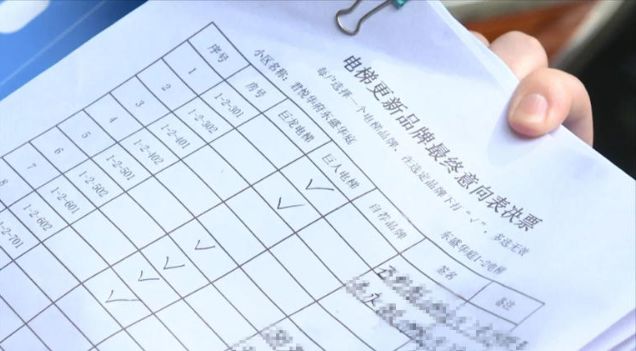 电梯更新品牌最终意向表决票
每户选择一个电梯品牌，在选定品牌下打“√”，多选无效
小区名称：君悦华府东盛华庭
序号 房号 巨龙电梯 巨人电梯 自荐品牌 签名 备注
1 1-2-301 √
2 1-2-302 √
3 1-2-401
4 1-2-402
5 1-2-501 √
6 1-2-502 √
7 1-2-601 √
8 1-2-602 √
1-2-701